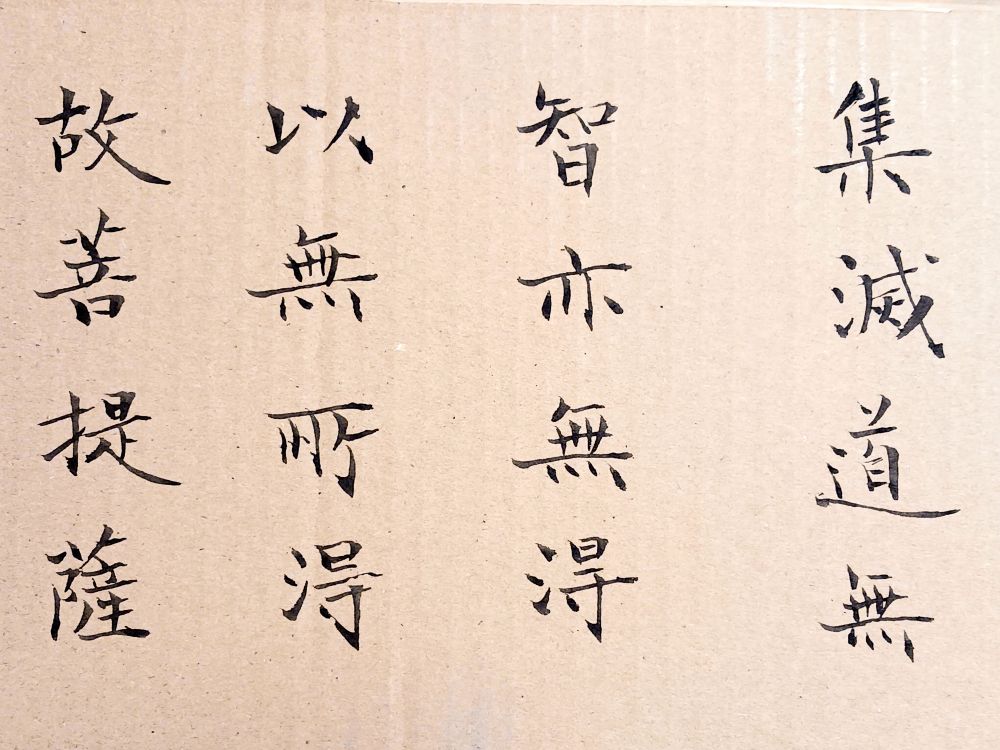 集滅道無
智亦無得
以無所得
故菩提薩